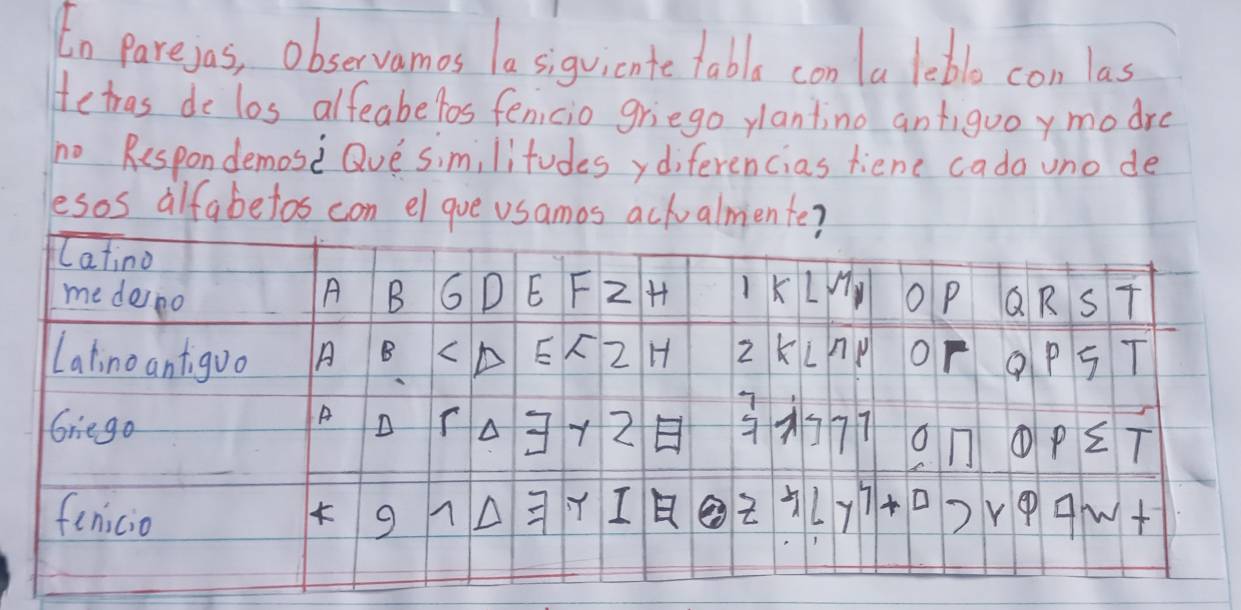 En parejas, Observamos la siguiente tabla con la tebla con las
tetras de los alfeabetos fenicio griego ylantino antiguo y modre
no Respondemos¿ Qué similitudes y diferencias tiene cada uno de
esos alfabetos con el que usamos actualmente?
Latino
mederno A B G D E F Z H I K L M N O P Q R S T
Latino antiguo A B < D E F Z H Z K L M P O Γ Q P S T
Griego A D Γ Δ Ǝ Y Σ 日 O Π Φ P Σ T
fenicio